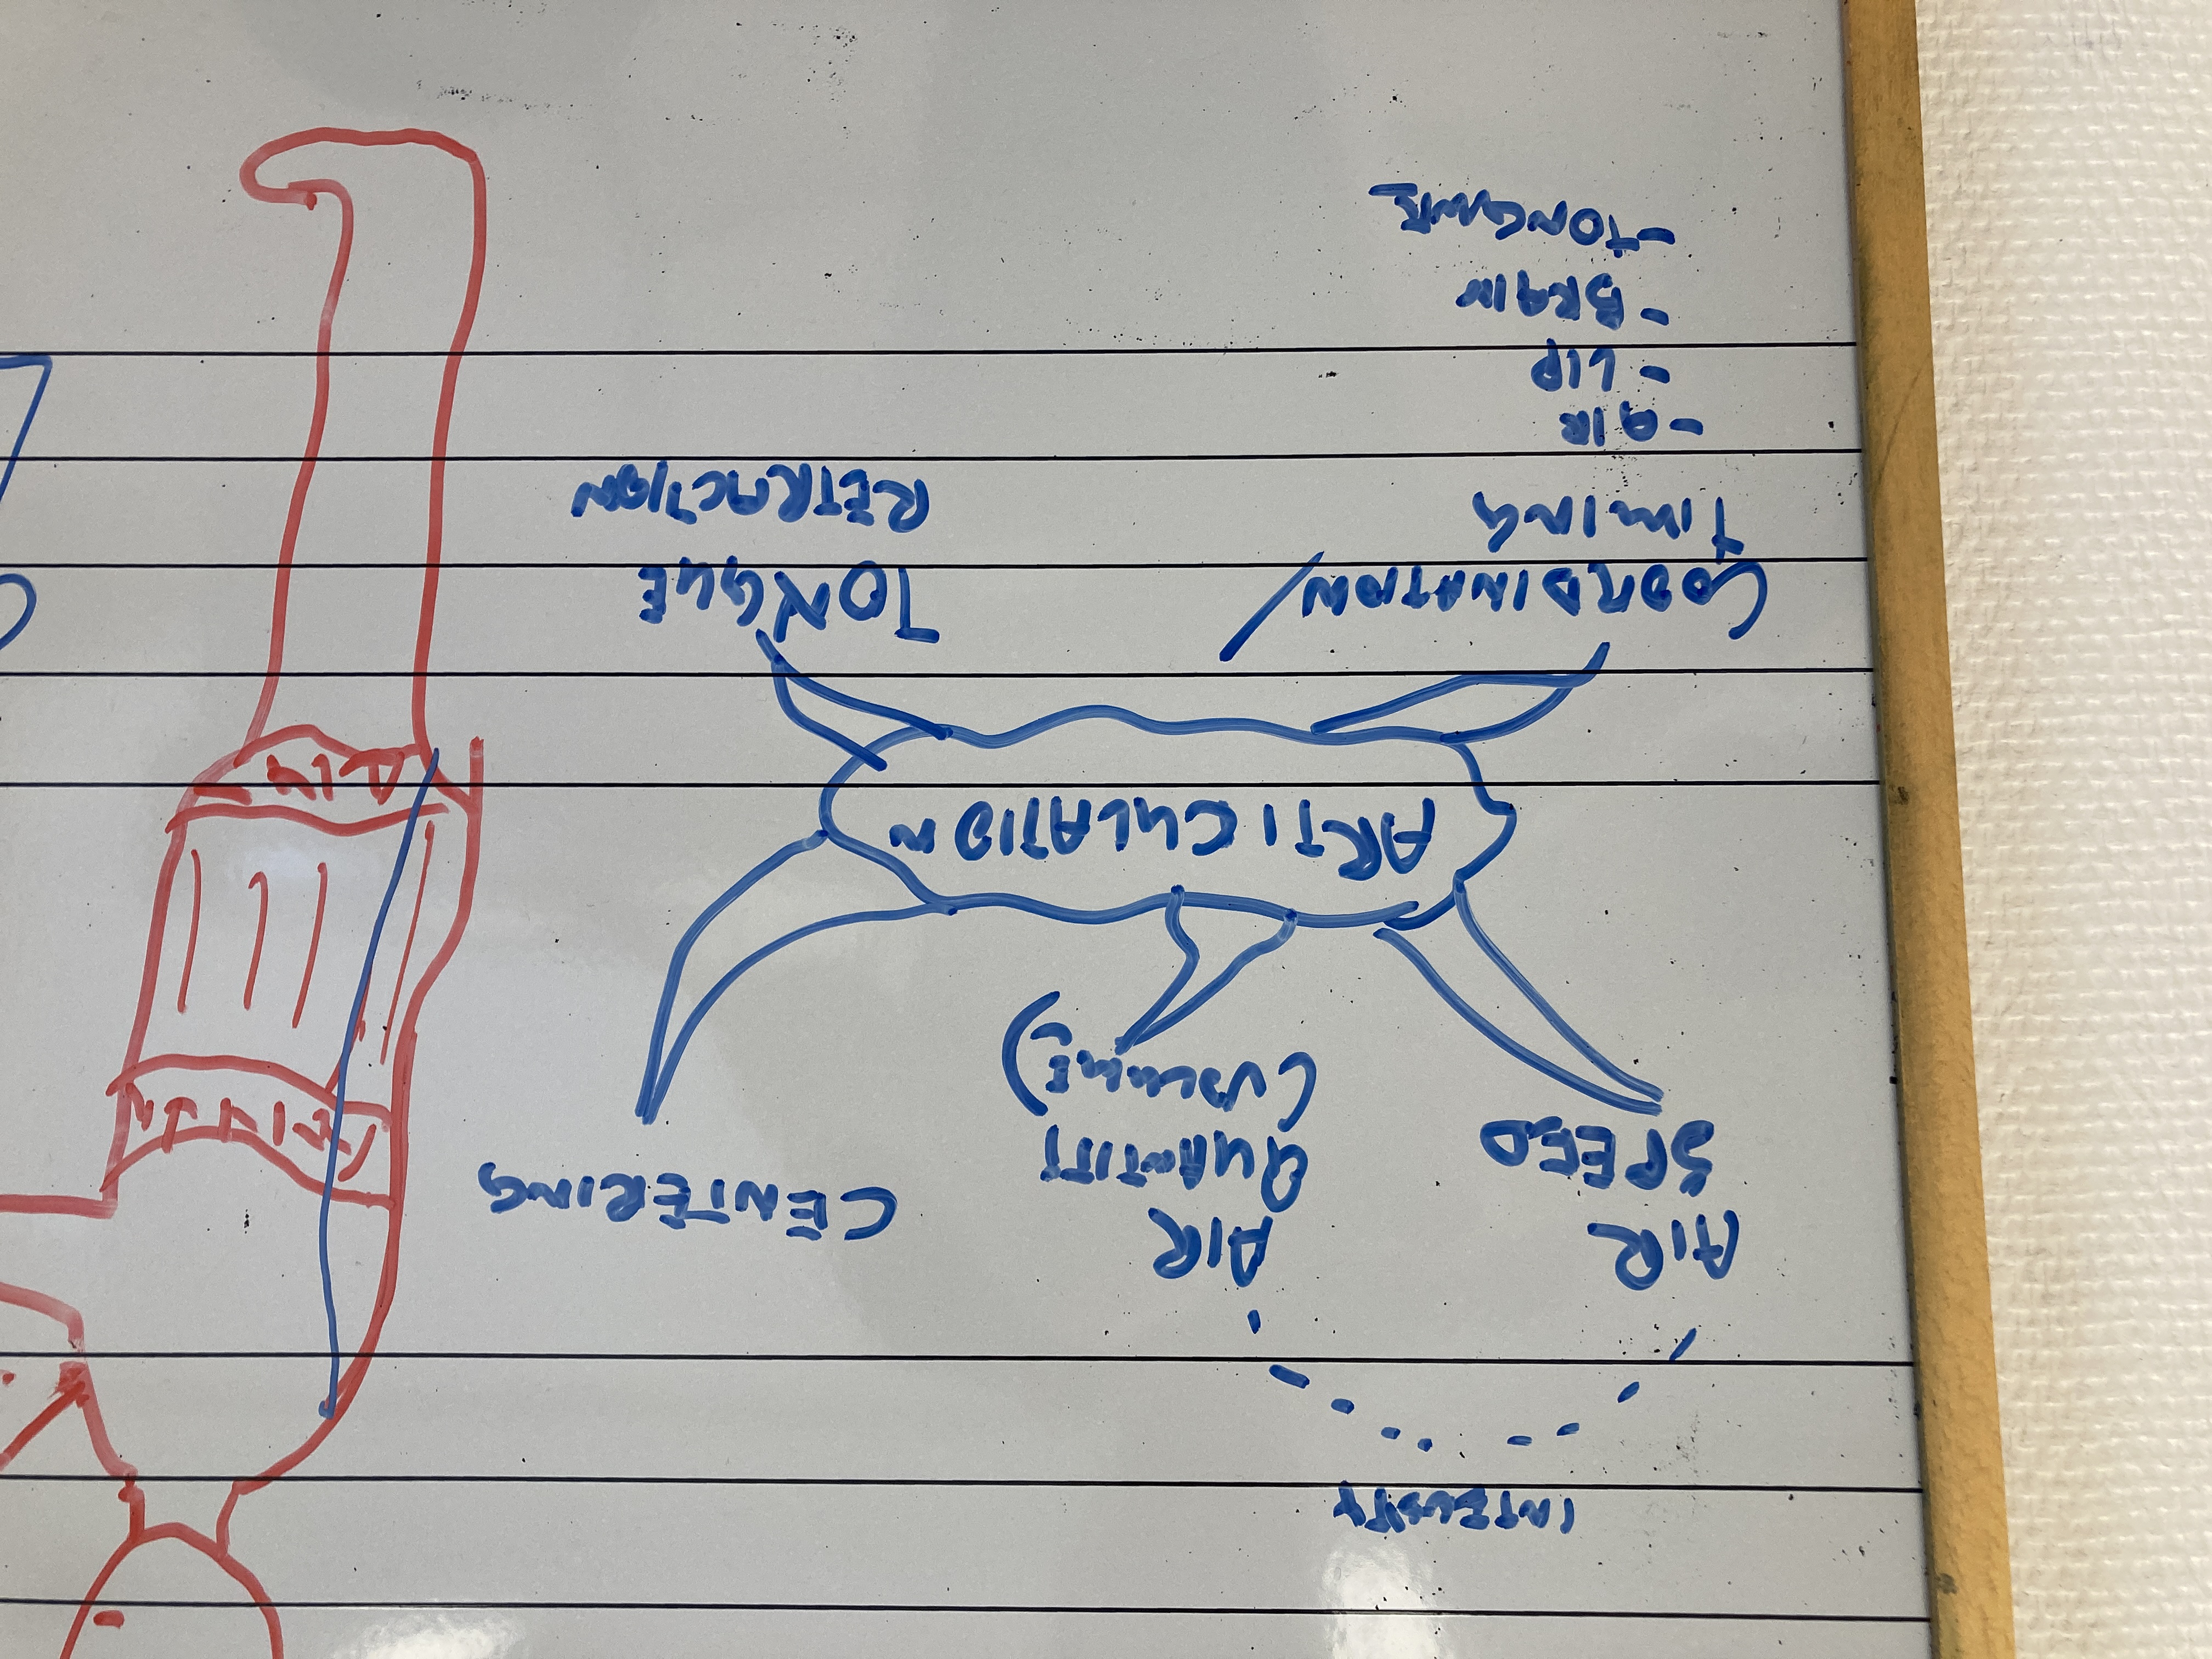 INTENSITY
AIR
SPEED
AIR
QUANTITY
(VOLUME)
CENTERING
ARTICULATION
COORDINATION/
TIMING
- AIR
- LIP
- BRAIN
- TONGUE
TONGUE
RETRACTION